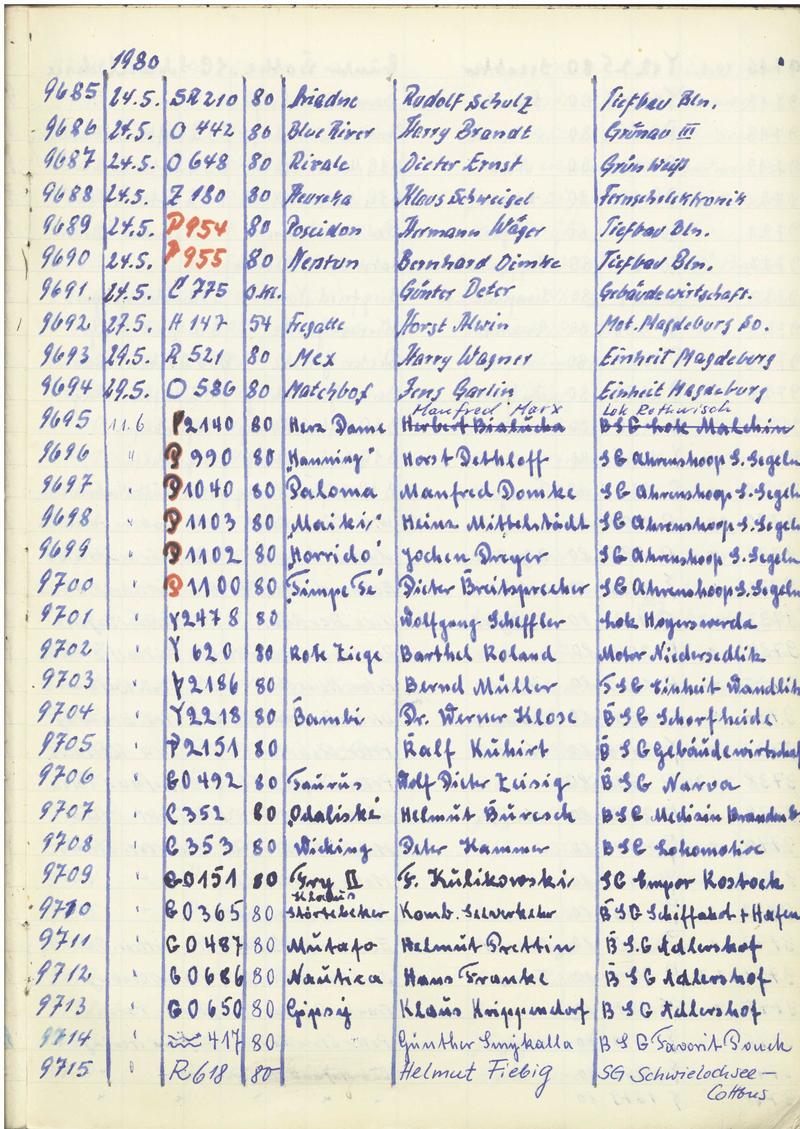 1980
9685 24.5. SR 210 80 Ariadne Rudolf Schulz Tiefbau Bln.
9686 24.5. O 442 80 Blue River Harry Brandt Grünau III
9687 24.5. O 648 80 Rivale Dieter Ernst Grün Weiß
9688 24.5. Z 180 80 Heureka Klaus Schweigel Fernsehelektronik
9689 24.5. P 954 80 Poseidon Hermann Wäger Tiefbau Bln.
9690 24.5. P 955 80 Neptun Bernhard Dimke Tiefbau Bln.
9691 24.5. C 775 o.Kl. Günter Deter Gebäudewirtschaft.
9692 27.5. H 147 54 Fregatte Horst Alwin Mot. Magdeburg So.
9693 29.5. R 521 80 Mex Harry Wagner Einheit Magdeburg
9694 29.5. O 586 80 Matchbox Jens Garlin Einheit Magdeburg
Manfred Marx Lok Rethwisch
9695 11.6 P 2140 80 Herz Dame Herbert Bialucha BSG Lok Malchin
9696 " P 990 80 "Hanning" Horst Dethloff SG Ahrenshoop S. Segeln
9697 " P 1040 80 Paloma Manfred Domke SG Ahrenshoop S. Segeln
9698 " P 1103 80 "Maiki" Heinz Mittelstädt SG Ahrenshoop S. Segeln
9699 " P 1102 80 "Horrido" Jochen Dreyer SG Ahrenshoop S. Segeln
9700 " P 1100 80 Timpe Te. Dieter Breitsprecher SG Ahrenshoop S. Segeln
9701 " Y 2478 80 Wolfgang Scheffler Lok Hoyerswerda
9702 " Y 620 80 Rote Ziege Barthel Roland Motor Niedersedlitz
9703 " P 2186 80 Bernd Müller TSG Einheit Wandlitz
9704 " Y 2218 80 Bambi Dr. Werner Klose BSG Schorfheide
9705 " P 2151 80 Ralf Kühirt BSG Gebäudewirtschaf
9706 " GO 492 80 Taurus Wolf Dieter Zeisig BSG Narva
9707 " C 352 80 Odaliske Helmut Buresch BSG Medizin Brandenb
9708 " C 353 80 Wicking Peter Hammer BSG Lokomotive
9709 " GO 151 80 Fry II F. Kulikowski SG Empor Rostock
9710 " GO 365 80 Klaus Störtebeker Komb. Seeverkehr BSG Schiffahrt + Hafen
9711 " GO 487 80 Mutafo Helmut Prettin BSG Adlershof
9712 " GO 686 80 Nautica Hans Franke BSG Adlershof
9713 " GO 650 80 Gipsy Klaus Krippendorf BSG Adlershof
9714 " 417 80 Günther Smykalla BSG Favorit Pouch
9715 " R 618 80 Helmut Fiebig SG Schwielochsee-
Cottbus